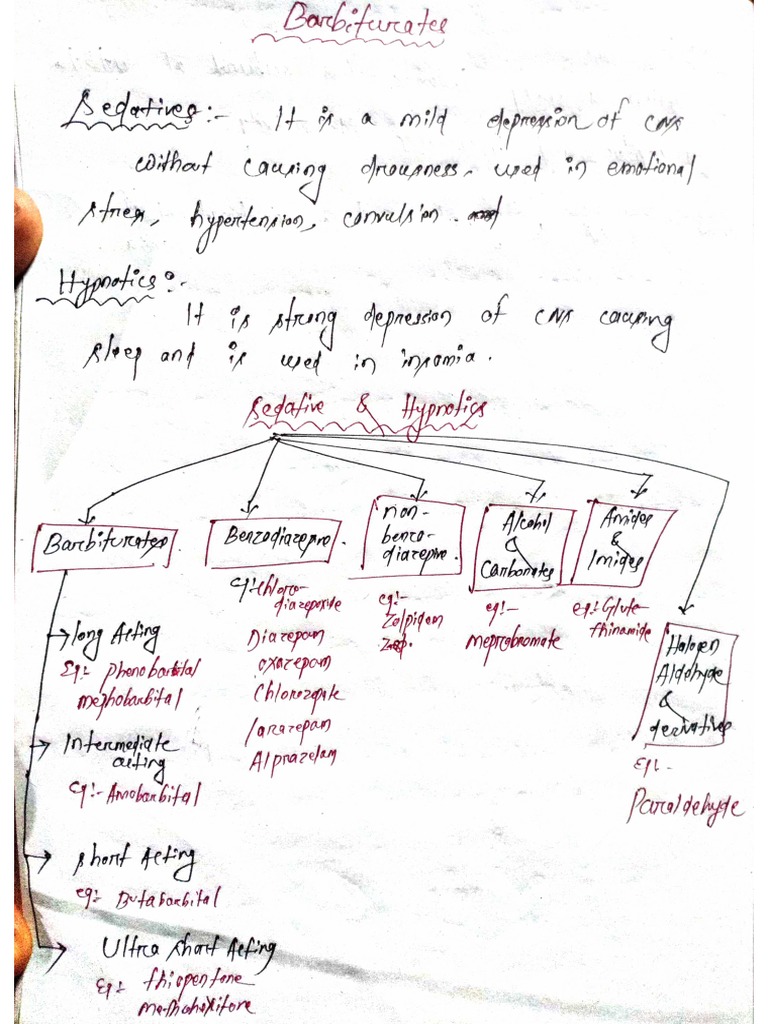 Barbiturates
Sedatives:- It is a mild depression of CNS
without causing drousness, used in emotional
stress, hypertension, convulsion.
Hypnotics:-
It is strong depression of CNS causing
sleep and is used in insomia.
Sedative & Hypnotics
Barbiturates
Benzodiazepine.
non-
benzo-
diazepine.
Alcohol
&
Carbonates
Amides
&
Imides
Halogen
Aldehyde
&
derivatives
Eg:-
Paraldehyde
eg:- chloro-
diazepoxide
Diazepam
oxazepam
Chlorazepate
lorazepam
Alprazolam
eg:-
Zolpidem
eg:-
Meprobromate
eg:- Glute-
thinamide
long Acting
Eg:- phenobarbital
mephobarbital
Intermediate
acting
eg:- Amobarbital
short Acting
eg:- Butabarbital
Ultra short Acting
Eg:- thiopentone
methohexitone